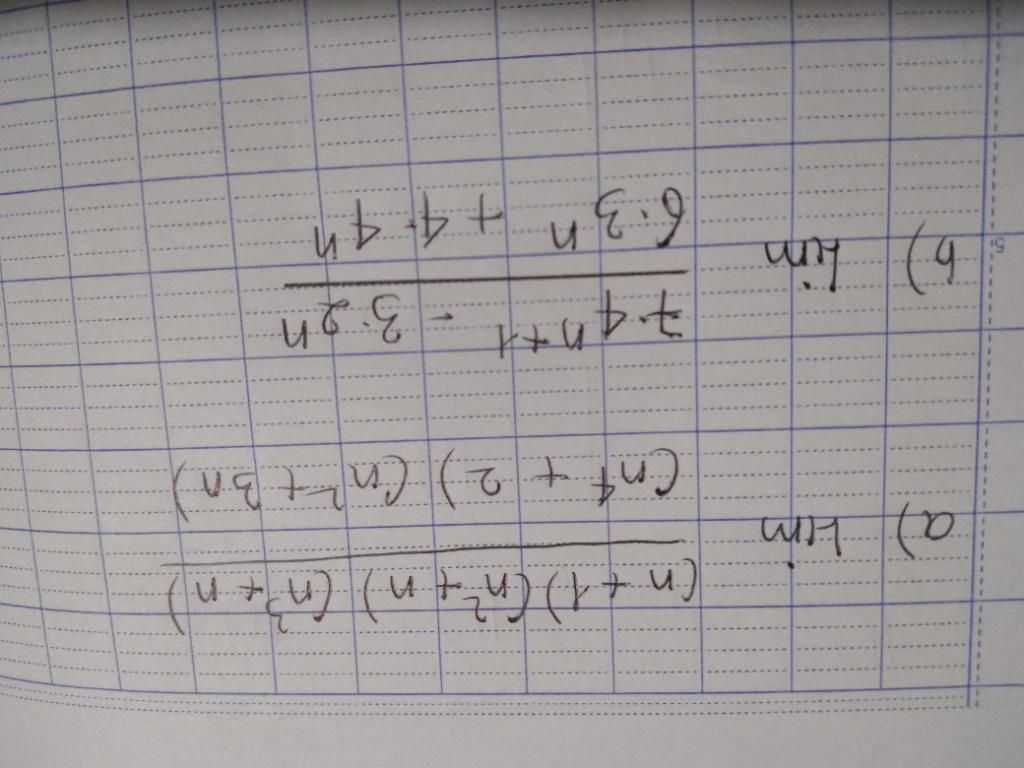 a) Lim \frac{(n+1)(n^2+n)(n^3+n)}{(n^4+2)(n^2+3n)}
b) Lim \frac{7 \cdot 4^{n+1} - 3 \cdot 2^n}{6 \cdot 3^n + 4 \cdot 4^n}
5